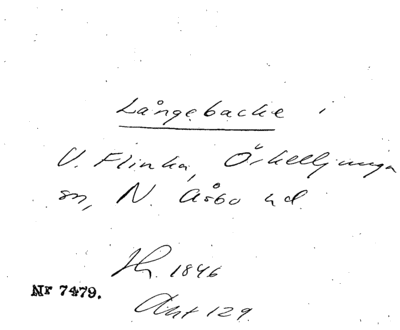 Långebacke i
V. Flinka, Örkelljunga
sn, N. Åsbo hd.
Hr. 1846
Nr 7479.
Akt 129